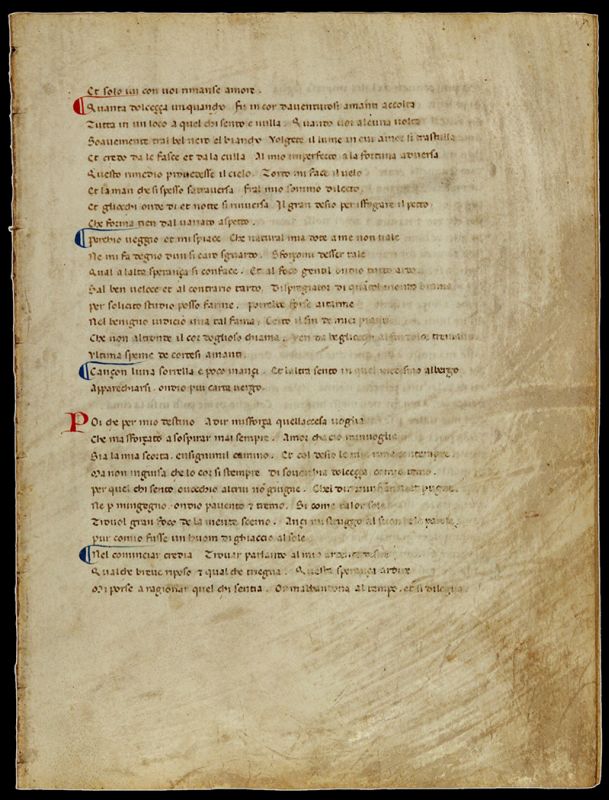 Et solo iui con uoi rimanse amore.
Quanta dolcezza unquancho. Fu in cor dauenturosi amanti accolta
Tutta in un loco a quel chi sento e nulla. Quando uoi alcuna uolta
Soauemente tral bel nero el biancho. Volgete il lume in cui amor si trastulla
Et credo da le fasce et da la culla. Al mio imperfecto. a la fortuna aduersa
Questo rimedio prouedesse il cielo. Torto mi face il uelo
Et la man che si spesso sattrauersa. Fral mio sommo dilecto
Et gliocchi onde di et notte si rinuersa. Il gran desio per isfogare il petto
Che forma tien dal uariato aspetto.
Perchio ueggio et mi spiace. Che natural mia dote a me non uale
Ne mi fa degno dun si caro sguardo. Sforzomi desser tale
Qual a lalta speranza si conface. Et al foco gentil ondio tutto ardo.
Sal ben ueloce et al contrario tardo. Dispregiator di quanto el mondo brama
per solicito studio posso farme. Porrebbe forse aitarme
Nel benigno iudicio una tal fama. Certo il fin de miei pianti
Che non altronde il cor doglioso chiama. Ven da
Vltima speme de cortesi amanti.
Canzon luna sorella e poco inanzi. Et laltra sento in quel medesmo albergo
Apparechiarsi. ondio piu carta uergo.
Poi che per mio destino. A dir mi sforza quellaccesa uoglia
Che ma sforzato a sospirar mai sempre. Amor che cio minuoglia
Sia la mia scorta. ensignimil camino. Et col desio le mie rime contempre.
Ma non inguisa che lo cor si stempre. Di souerchia dolcezza. comio temo.
per quel chi sento ouocchio altrui nō giugne. Chel dir
Ne p mingegno. ondio pauento & tremo. Si come talor sole
Trouol gran foco de la mente scemo. Anzi mi struggo al suon de le parole.
pur comio fusse un huom di ghiaccio al sole.
Nel cominciar credia. Trouar parlando al mio
Qualche breue riposo & qual che triegua. Questa speranza ardire
Mi porse a ragionar quel chi sentia. Or mabbandona al tempo. et si dilegua.